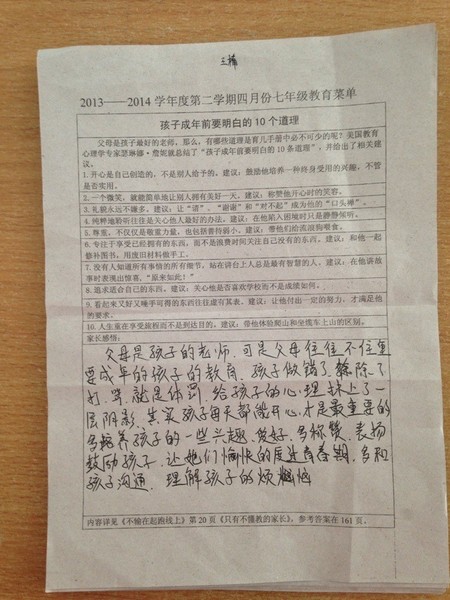 王楠
2013——2014学年度第二学期四月份七年级教育菜单
孩子成年前要明白的10个道理
父母是孩子最好的老师,那么,有哪些道理是育儿手册中必不可少的呢?美国教育
心理学专家瑟琳娜·詹妮就总结了“孩子成年前要明白的10条道理”,并给出了相关建
议。
1.开心是自己创造的,不是别人给予的。建议:鼓励他培养一种终身受用的兴趣,不管
是否实用。
2.一个微笑,就能简单地让别人拥有美好一天。建议:称赞他开心时的笑容。
3.礼貌永远不嫌多。建议:让“请”、“谢谢”和“对不起”成为他的“口头禅”。
4.纯粹地聆听往往是关心他人最好的办法。建议:在他陷入困境时只是静静倾听。
5.尊重,不仅仅是敬重力量,也包括善待弱小。建议:带他们给流浪狗喂食。
6.专注于享受已经拥有的东西,而不是浪费时间关注自己没有的东西。建议:和他一起
修补图书,用废旧材料做手工。
7.没有人知道所有事情的所有细节,站在讲台上人总是最有智慧的人。建议:在他讲故
事时表现出惊喜,“原来如此!”
8.追求适合自己的东西。建议:关心他是否喜欢学校而不是成绩如何。
9.看起来又好又唾手可得的东西往往虚有其表。建议:让他付出一定的努力,才满足他
的要求。
10.人生重在享受旅程而不是到达目的。建议:带他体验爬山和坐缆车上山的区别。
家长感悟:
父母是孩子的老师,可是父母往往不注重
要成年的孩子的教育,孩子做错了,除了
打骂,就是体罚,给孩子的心理抹上了一
层阴影,其实孩子每天都能开心,才是最重要的
多培养孩子的一些兴趣、爱好,多称赞,表扬
鼓励孩子,让她们愉快的度过青春期,多和
孩子沟通,理解孩子的烦恼
内容详见《不输在起跑线上》第20页《只有不懂教的家长》,参考答案在161页。